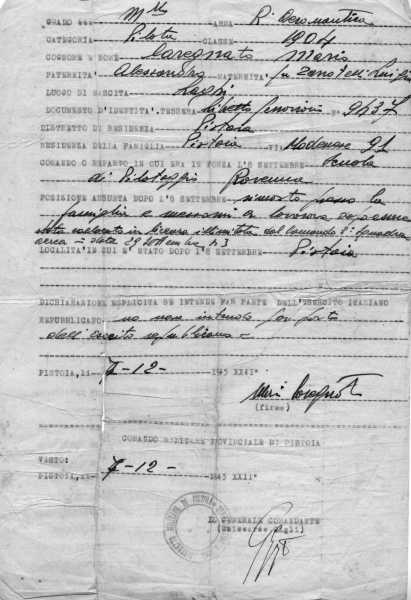 GRADO Mllo ARMA R. Aeronautica
CATEGORIA Pilota CLASSE 1904
COGNOME E NOME Caregnato Mario
PATERNITA' Alessandro MATERNITA' fu Zanotelli Luigia
LUOGO DI NASCITA
DOCUMENTO D'IDENTITA' TESSERA libretto ferroviario N° 9437
DISTRETTO DI RESIDENZA Pistoia
RESIDENZA DELLA FAMIGLIA Pistoia VIA Modenese 91
COMANDO O REPARTO IN CUI ERA IN FORZA L'8 SETTEMBRE Scuola
di Pilotaggio Ravenna
POSIZIONE ASSUNTA DOPO L'8 SETTEMBRE rimasto presso la
famiglia e messomi a lavorare
stato collocato in licenza illimitata dal comando 2ª Squadra
aerea in data 29 settembre 43
LOCALITA' IN CUI E' STATO DOPO L'8 SETTEMBRE Pistoia
DICHIARAZIONE ESPLICITA SE INTENDE FAR PARTE DELL'ESERCITO ITALIANO
REPUBBLICANO no non intendo far parte
dell'esercito repubblicano -
PISTOIA, LI 7-12- 1943 XXII°
(firma)
COMANDO MILITARE PROVINCIALE DI PISTOIA
VISTO:
PISTOIA, LI 7-12- 1943 XXII°
IL GENERALE COMANDANTE